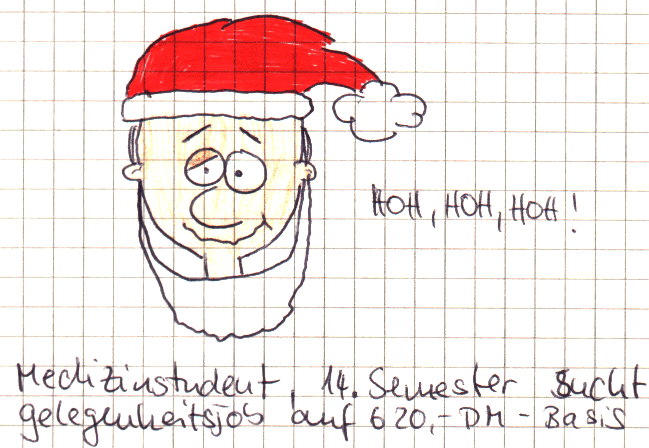 HOH, HOH, HOH!
Medizinstudent, 14. Semester sucht
gelegenheitsjob auf 620,- DM - Basis